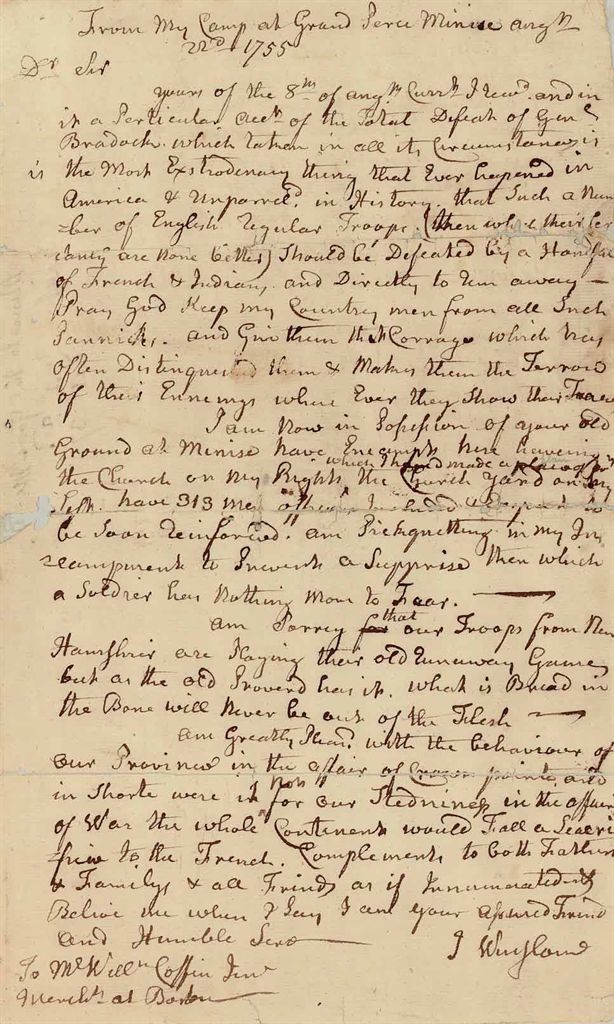 From My Camp at Grand Peree Minise augst
22d 1755
Dr Sir
yours of the 8th of augst Currt I recd. and in
it a Perticular acct of the Total Defeat of Genl
Bradock. which taken in all its Circumstances is
is the Most Extrodenary thing that Ever hapened in
America & unparreld in History. that Such a Num
ber of English regular Troops. (then who their
are None better) Should be Defeated by a Handful
of French & Indians, and Directly to run away —
Pray God Keep my Country men from all Such
Pannicks. and Give them that Corrage which has
often Distinguesed them & Makes them the Terrow
of their Ennemys where Ever they Show their Faces
I am Now in Posesion of your old
Ground at Minise have Encampt here haveing
the Church on my Right which I have made a place of
the Church Yard on my
Left. have 313 Men officers Included & Expect to
be Soon reinforced. am Pickquetting in my In
campment to Prevent a Supprise then which
a Soldier has Nothing More to Fear. —
am Sorrey for that our Troops from New
Hamshier are Playing their old runaway Games
but as the old Proverd has it. what is Bread in
the Bone will Never be out of the Flesh —
am Greatly Pleasd with the behaviour of
our Province in the affair of Crown point, and
in Shorte were it Not for our Stedniness in the affairs
of War the whole Continent would Fall a Sacri
fice to the French. Complements to both Fathers
& Familys & all Frinds as if Innumorated
Belive me when I Say I am your assured Frind
and Humble Servt
J Winslow
To Mr Willm Coffin Junr
Mercht at Boston